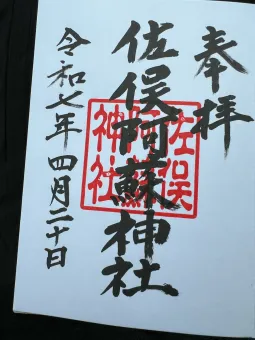 奉拝
佐俣阿蘇神社
佐俣阿蘇神社
令和七年四月二十日